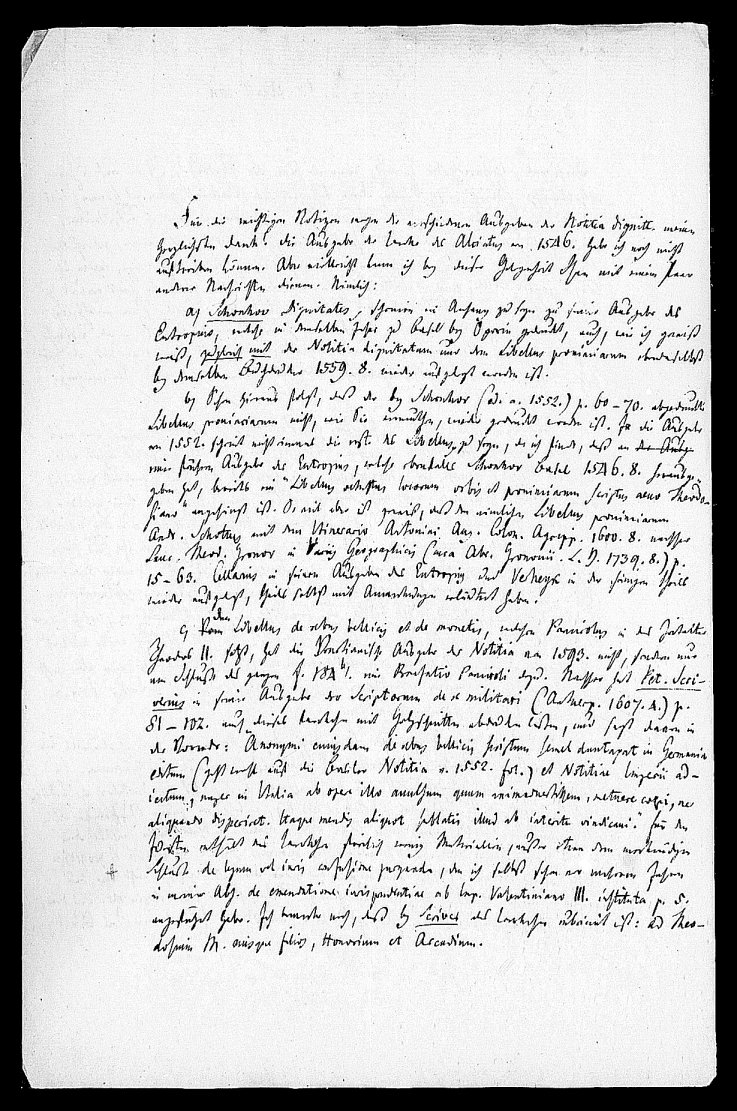 Für die wichtigen Notizen wegen der verschiedenen Ausgaben der Notitia dignitt. meinen
herzlichsten Dank. Die Ausgabe der des Alciatus von 1546. habe ich noch nicht
auftreiben können. Aber vielleicht kann ich bey dieser Gelegenheit Ihnen mit einem Paar
anderer Nachrichten dienen. Nämlich:
a) Schonhov Dignitates, scheinen ein Anhang zu seyn zu seiner Ausgabe des
Eutropius, welche in demselben Jahre zu Basel bey Oporin gedruckt, auch, wie ich gewiß
weiß, zugleich mit der Notitia dignitatum und dem Libellus provinciarum ebendaselbst
bey demselben Buchdrucker 1559. 8. wieder aufgelegt worden ist.
b) Schon hieraus folgt, daß der bey Schonhov (edi. a. 1552.) p. 60 – 70. abgedruckte
Libellus provinciarum nicht, wie Sie vermuthen, wieder gedruckt worden ist. Ja die Ausgabe
von 1552. scheint nicht einmal die erste des Libellus zu seyn, da ich finde, daß an der Ausg.
einer früheren Ausgabe des Eutropius, welche ebenfalls Schonhov Basel 1546. 8. herausge-
geben hat, bereits ein "Libellus vetustus locorum orbis et provinciarum scriptus aevo Theodo-
siano" angehängt ist. So viel aber ist gewiß, daß den nämlichen Libellus provinciarum
Andr. Schottus mit dem Itinerario Antonini Aug. Colon. Agripp. 1600. 8. nachher
Laur. Theod. Gronov in Variis Geographicis (cura Abr. Gronovii. L. B. 1739. 8.) p.
15 – 63. Cellarius in seinen Ausgaben des Eutropius und Verheyk in der seinigen theils
wieder aufgelegt, theils selbst mit Anmerkungen erläutert haben.
c) Den Libellus de rebus bellicis et de monetis, welchen Pancirolus in das Zeitalter
Theodos II. setzt, hat die Venetianische Ausgabe der Notitia von 1593. nicht, sondern nur
am Schlusse des ganzen f. 184 b/. eine Praefatio Panciroli dazu. Nachher hat Pet. Scri-
verius in seiner Ausgabe der Scriptorum de re militari (Antverp. 1607. 4.) p.
81 – 102. auch dieses Werkchen mit Holzschnitten abdrucken lassen, und sagt davon in
der Vorrede: "Anonymi cuiusdam de rebus bellicis scriptum semel duntaxat in Germania
editum (geht wohl auf die Basler Notitia v. 1552. fol.) et Notitiae Imperii ad-
iectum, nuper in Italia ab opere illo avulsum quum animadvertissem, retinere coepi, ne
aliquando disperiret. Itaque mendis aliquot sublatis illud ab interitu vindicavi." Für den
Juristen enthält das Werkchen ziemlich wenig Materialien, außer etwa dem merkwürdigen
Schlusse de legum vel iuris confusione purganda, den ich selbst schon vor mehreren Jahren
in meiner Abh. de emendatione iurisprudentiae ab Imp. Valentiniano III. instituta p. 5.
angeführt habe. Ich bemerke noch, daß bey Scriver das Werkchen rubricirt ist: ad Theo-
dosium M. eiusque filios, Honorium et Arcadium.